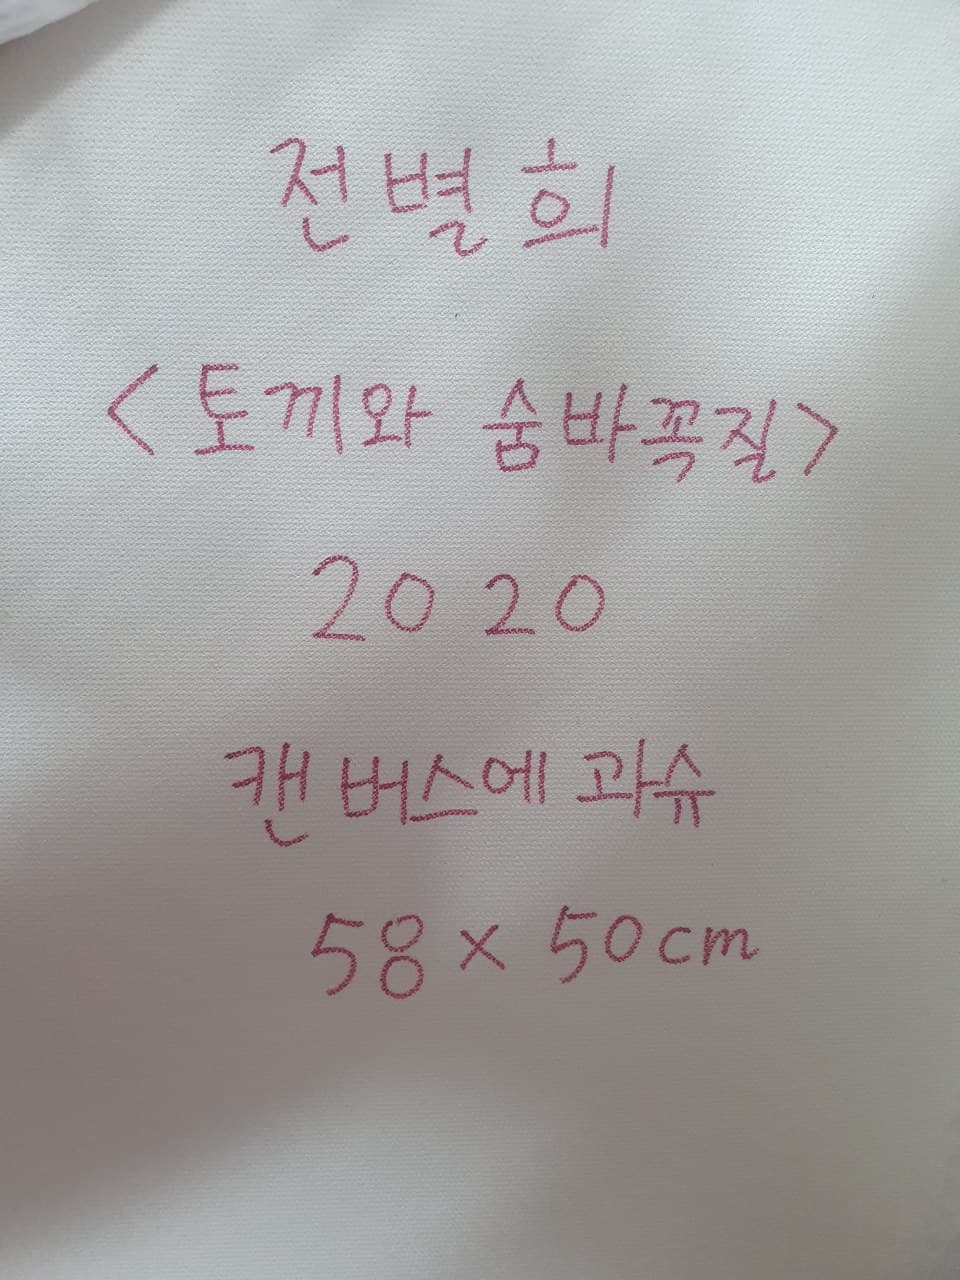 전별희
<토끼와 숨바꼭질>
2020
캔버스에 과슈
58 x 50cm